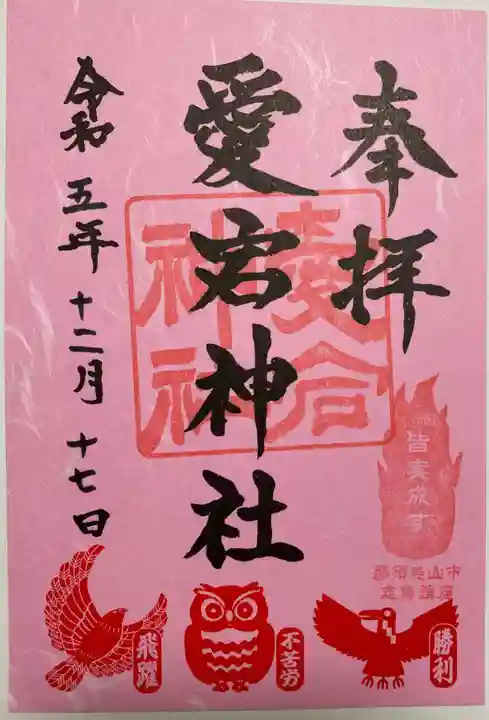 奉拝
愛宕神社
愛宕
神社
令和五年十二月十七日
那須烏山市
飛躍
不苦労
勝利